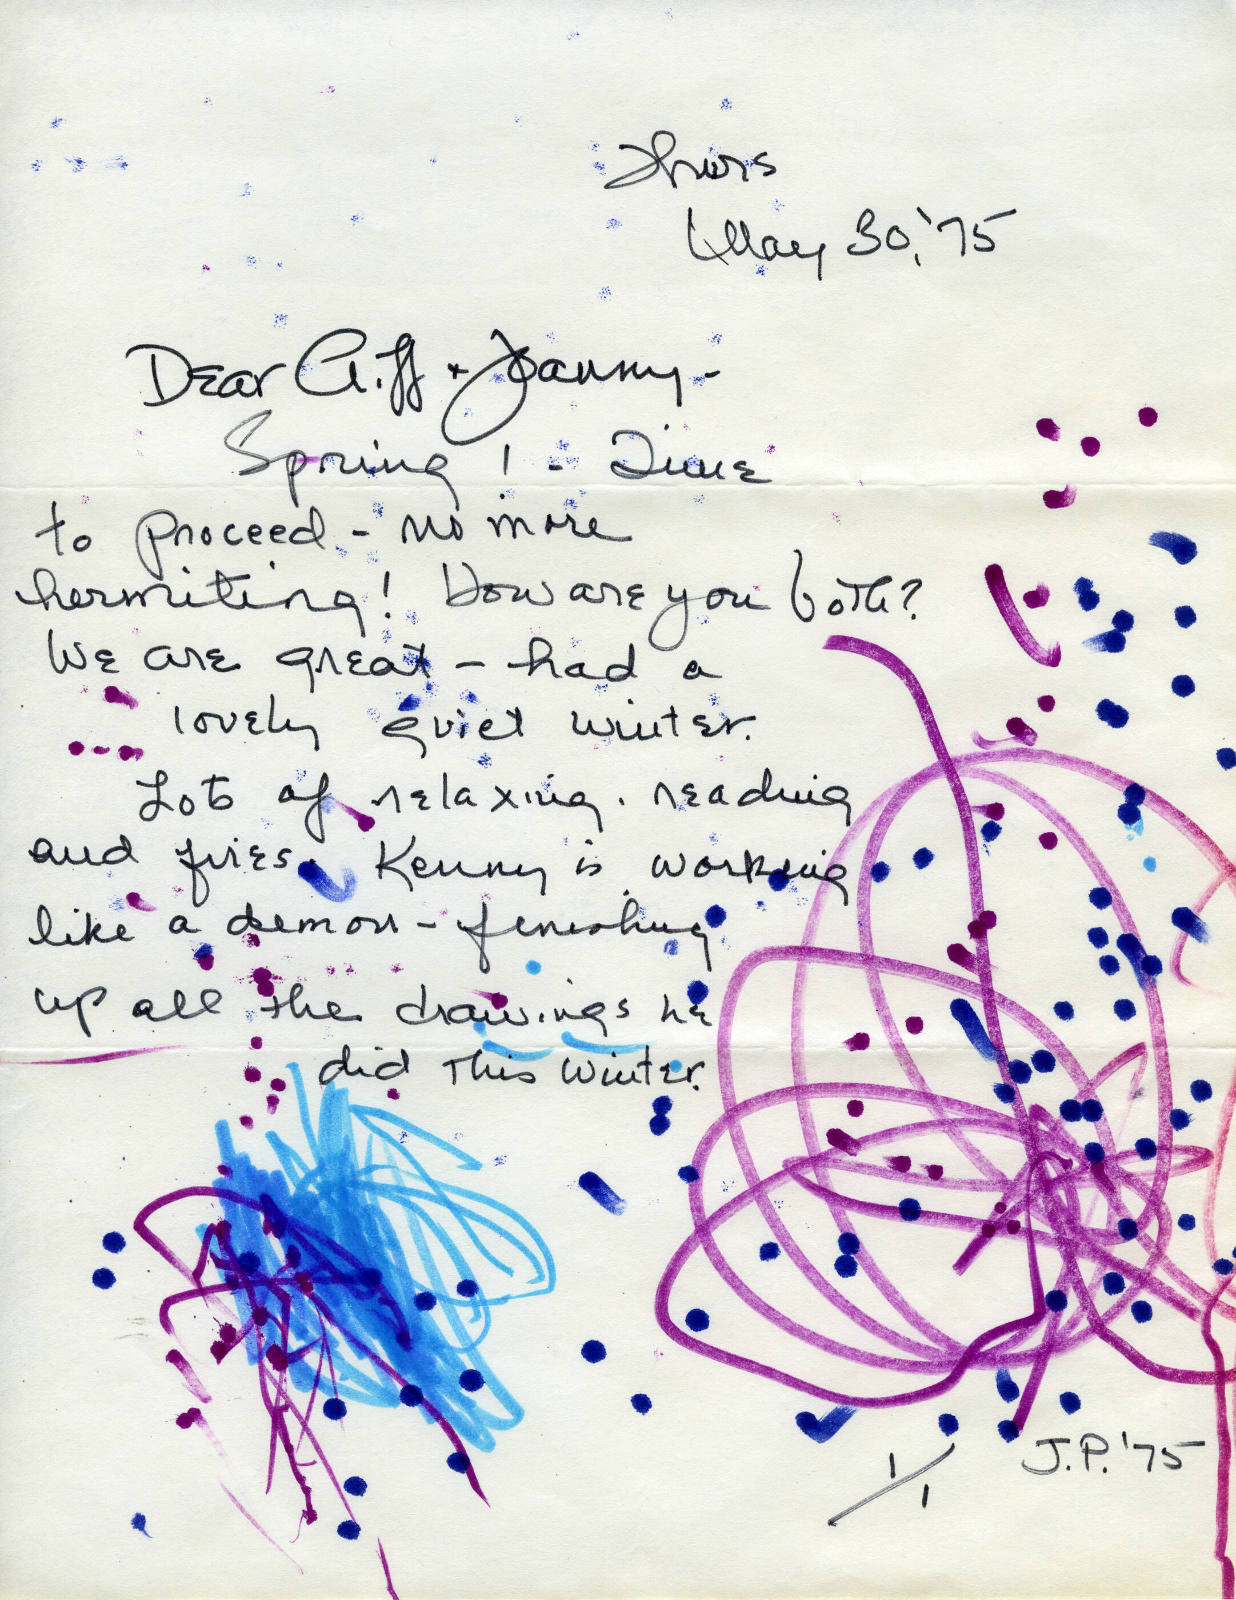 Thurs
May 30, '75
Dear Cliff +
Spring! - Time
to proceed - no more
hermiting! How are you both?
We are great - had a
lovely quiet winter.
Lots of relaxing. reading
and fires. Kenny is working
like a demon - finishing
up all the drawings he
did this winter.
1/1 J.P. '75